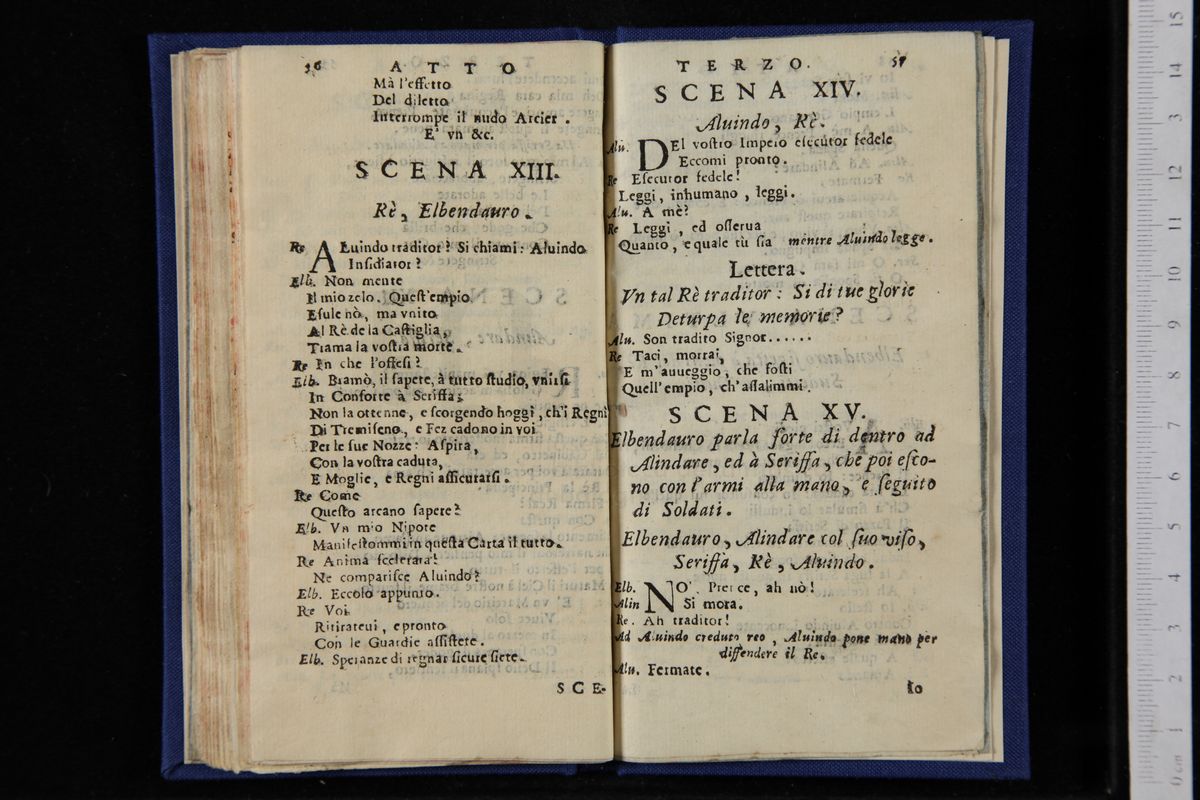 56 ATTO
Mà l'effetto
Del diletto
Interrompe il nudo Arcier.
E' vn &c.
SCENA XIII.
Rè, Elbendauro.
Re ALuindo traditor? Si chiami: Aluindo
Insidiator?
Elb. Non mente
Il mio zelo. Quest'empio
Esule nò, ma vnito
Al Rè de la Castiglia,
Trama la vostra morte.
Re In che l'offesi?
Elb. Bramò, il sapete, à tutto studio, vnirsi
In Consorte à Seriffa;
Non la ottenne, e scorgendo hoggi, ch'i Regni
Di Tremiseno, e Fez cadono in voi
Per le sue Nozze: Aspira,
Con la vostra caduta,
E Moglie, e Regni assicurarsi.
Re Come
Questo arcano sapete?
Elb. Vn mio Nipote
Manifestommi in questa Carta il tutto.
Re Anima scelerata!
Ne comparisce Aluindo?
Elb. Eccolo appunto.
Re Voi
Ritirateui, e pronto
Con le Guardie assistete.
Elb. Speranze di regnar sicure siete.
SCE-
TERZO. 57
SCENA XIV.
Aluindo, Rè.
Alu. DEl vostro Impeio esecutor fedele
Eccomi pronto.
Re Esecutor fedele!
Leggi, inhumano, leggi.
Alu. A mè?
Re Leggi, ed osserua
Quanto, e quale tù sia mentre Aluindo legge.
Lettera.
Vn tal Rè traditor: Si di tue glorie
Deturpa le memorie?
Alu. Son tradito Signor......
Re Taci, morrai,
E m'auueggio, che fosti
Quell'empio, ch'assalimmi.
SCENA XV.
Elbendauro parla forte di dentro ad
Alindare, ed à Seriffa, che poi esco-
no con l'armi alla mano, e seguito
di Soldati.
Elbendauro, Alindare col suo viso,
Seriffa, Rè, Aluindo.
Elb. NO'. Prence, ah nò!
Alin Si mora.
Re. Ah traditor!
Ad Aluindo creduto reo, Aluindo pone mano per
diffendere il Re.
Alu. Fermate.
Io